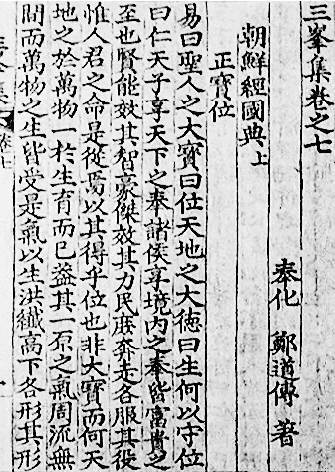 三峯集卷之七
奉化 鄭道傳 著
朝鮮經國典上
正寶位
易曰聖人之大寶曰位天地之大德曰生何以守位
曰仁天子享天下之奉諸侯享境內之奉皆富貴之
至也賢能效其智豪傑效其力民庶奔走各服其役
惟人君之命是從焉以其得乎位也非大寶而何天
地之於萬物一於生育而已盖其一原之氣周流無
間而萬物之生皆受是氣以生洪纖高下各形其形